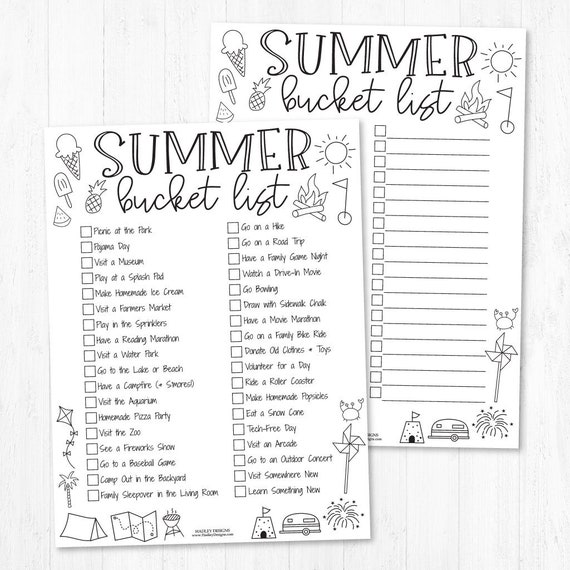 SUMMER
bucket list
Picnic at the Park
Pajama Day
Visit a Museum
Play at a Splash Pad
Make Homemade Ice Cream
Visit a Farmers Market
Play in the Sprinklers
Have a Reading Marathon
Visit a Water Park
Go to the Lake or Beach
Have a Campfire (+ S'mores!)
Visit the Aquarium
Homemade Pizza Party
Visit the Zoo
See a Fireworks Show
Go to a Baseball Game
Camp Out in the Backyard
Family Sleepover in the Living Room
Go on a Hike
Go on a Road Trip
Have a Family Game Night
Watch a Drive-In Movie
Go Bowling
Draw with Sidewalk Chalk
Have a Movie Marathon
Go on a Family Bike Ride
Donate Old Clothes + Toys
Volunteer for a Day
Ride a Roller Coaster
Make Homemade Popsicles
Eat a Snow Cone
Tech-Free Day
Visit an Arcade
Go to an Outdoor Concert
Visit Somewhere New
Learn Something New
HADLEY DESIGNS
www.HadleyDesigns.com
SUMMER
bucket list